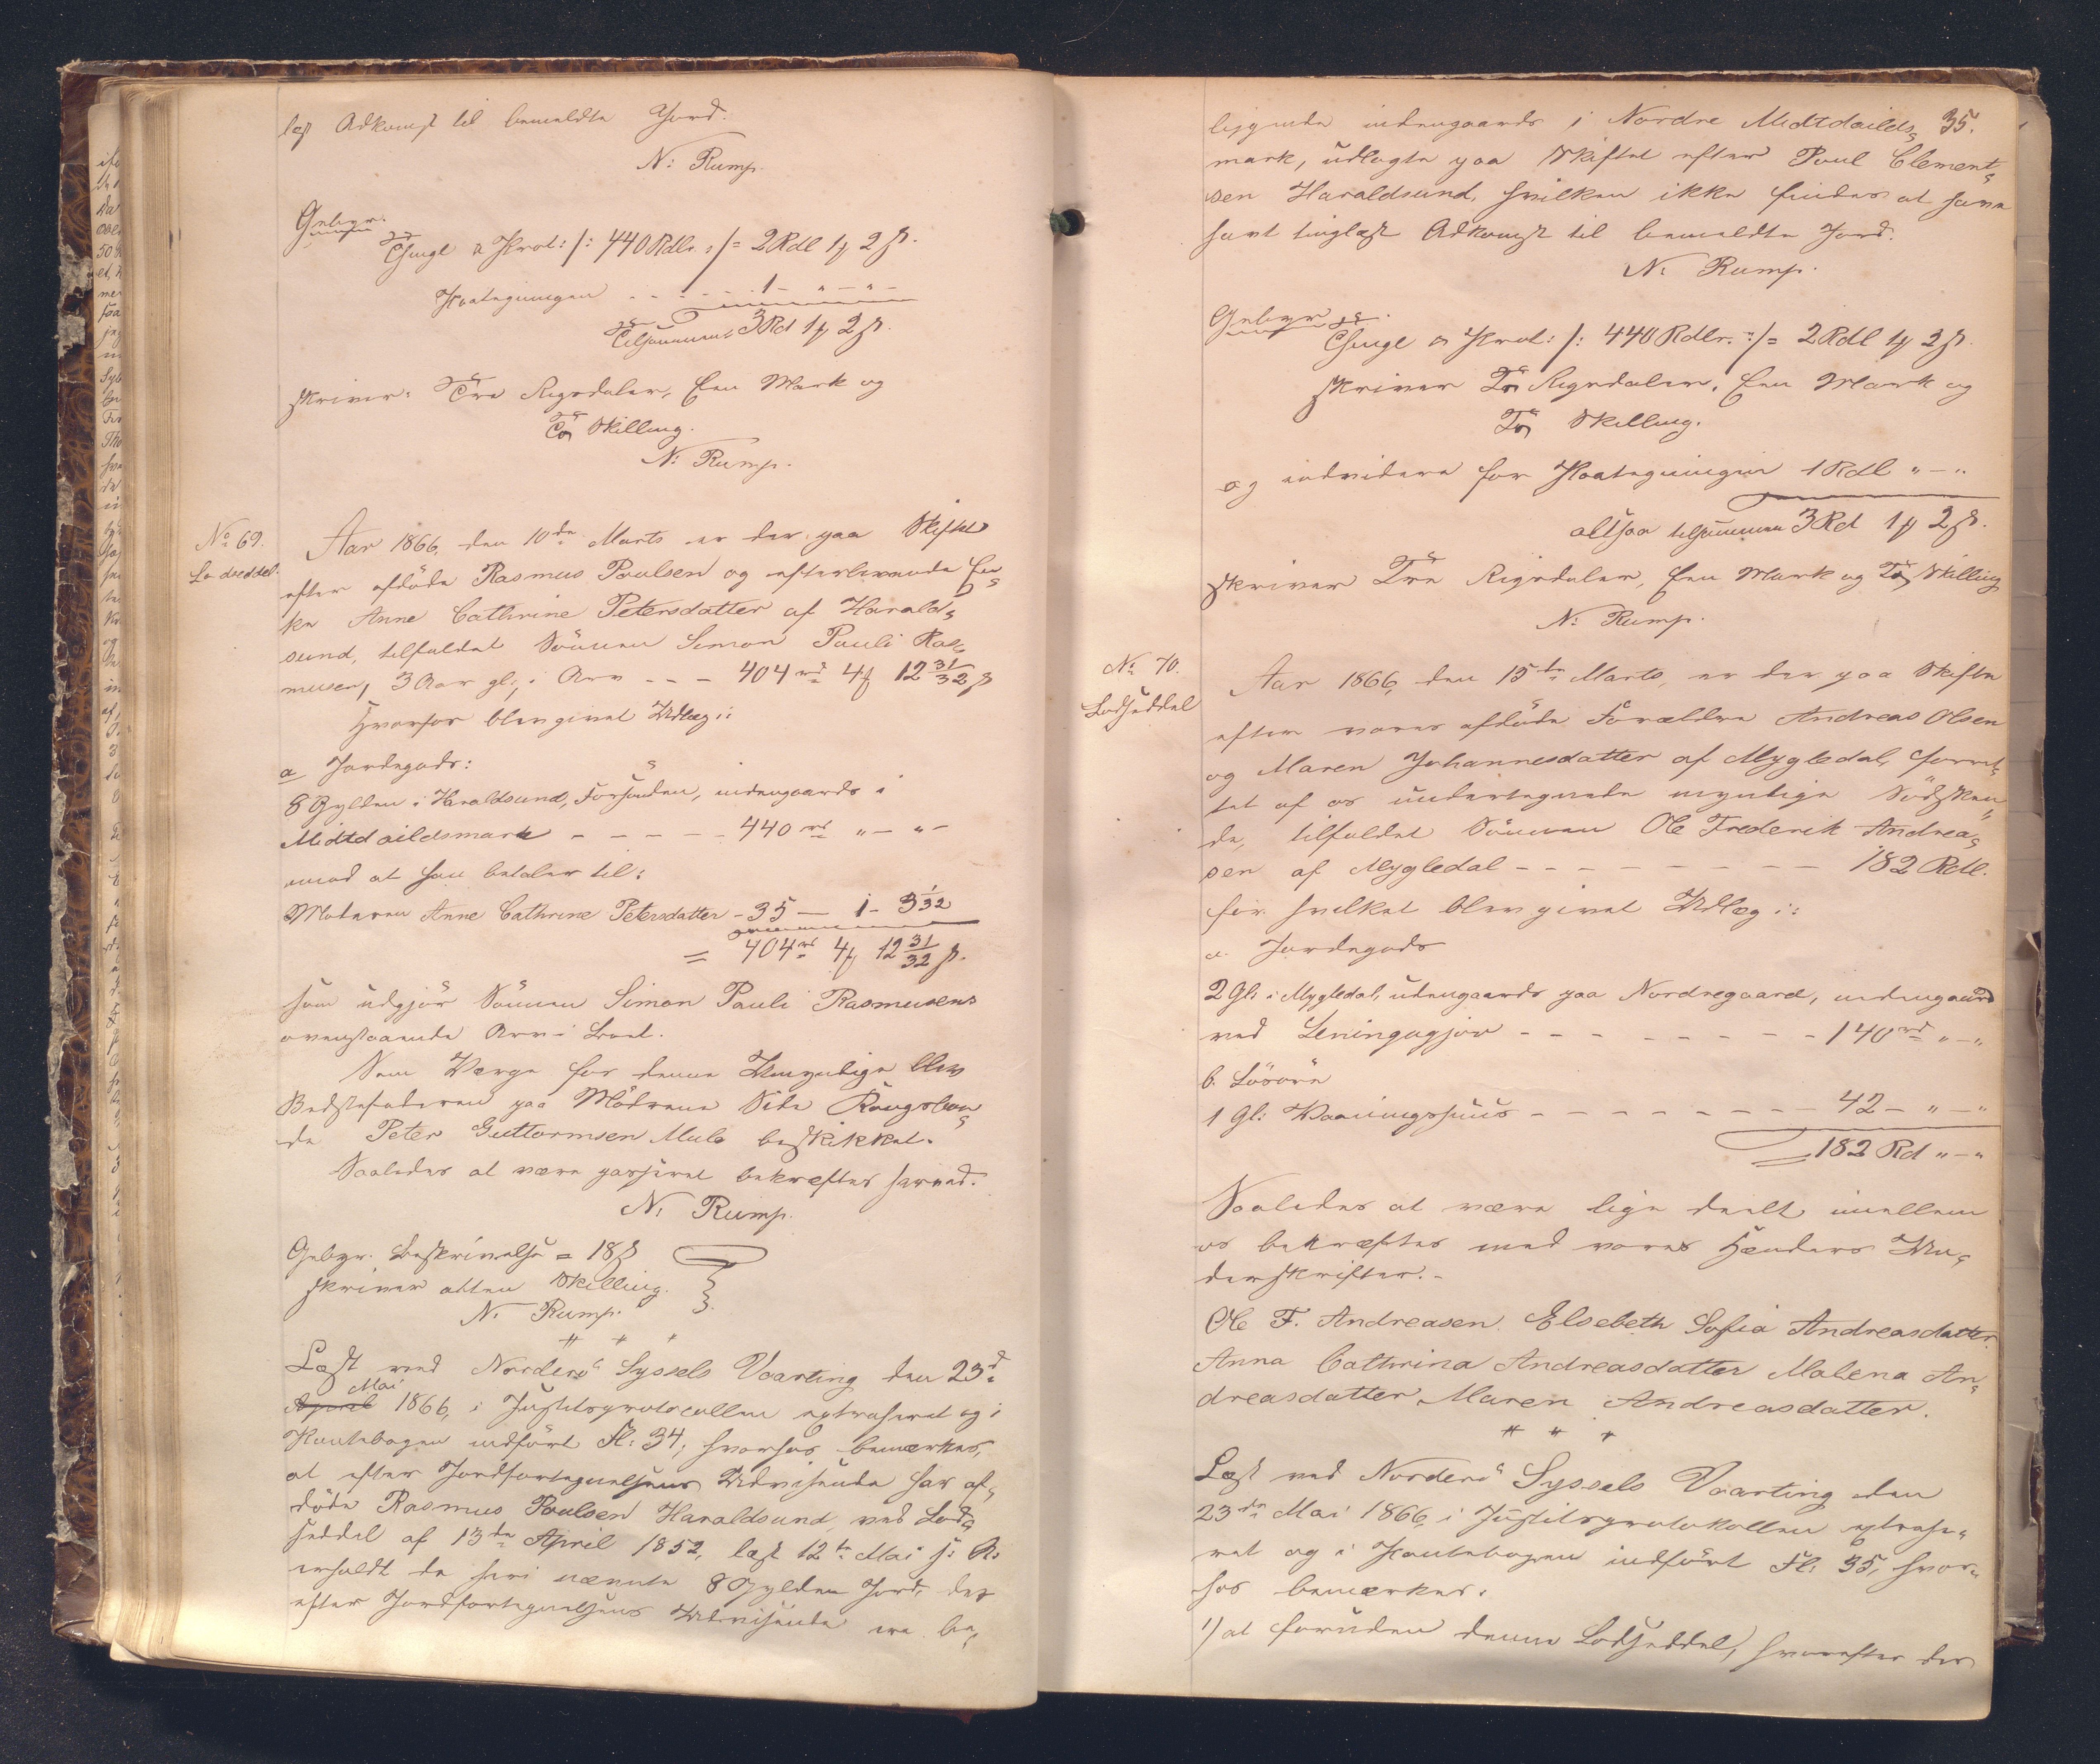 læst Adkomst til bemeldte Jord.
N: Rump.
Gebyr.
Thingl a Prot: /: 440 Rdlr. :/ = 2 Rdl 1 ℳ 2 ß.
Paategningen - - - - - 1 - " - " -
Tilsammens 3 Rd 1 ℳ 2 ß.
skriver: Tre Rigsdaler, Een Mark og
To Skilling.
N: Rump.
No 69.
Lodseddel.
Aar 1866, den 10de Marts er der paa Skiftet
efter afdöde Rasmus Poulsen og efterlevende En=
ke Anne Cathrine Petersdatter af Harald=
sund, tilfaldet Sönnen Simon Pauli Ras=
musen, 3 Aar gl:, i Arv - - - 404 rd 4 ℳ 12 31/32 ß
Hvorfor blev givet Udlæg i:
a Jordegods:
8 Gylden i Haraldsund, indengaards i
Midtdaildsmark - - - - - 440 rd " - " -
mod at han betaler til:
Moderen Anne Cathrine Petersdatter - 35 - 1 - 3 1/32
= 404 rd 4 ℳ 12 31/32 ß.
som udgjör Sönnen Simon Pauli Rasmusens
ovenstaaende Arv i Boet.
Som Værge for denne Umyndige blev
Bedstefaderen paa Mödrene Side Kongsbon=
de Peter Guttormsen Mule beskikket.
Saaledes at være passeret bekræftes herved.
N: Rump.
Gebyr. Beskrivelse = 18 ß
skriver atten Skilling.
N: Rump.
Læst ved Norderö Syssels Vaarting den 23d
Mai
April 1866, i Justitsprotocollen extraheret og i
Pantebogen indfört Fl: 34; hvorhos bemærkes,
at efter Jordfortegnelsens Udvisende har af=
döde Rasmus Poulsen Haraldsund ved Lod=
seddel af 13de April 1852, læst 12te Mai s: A:
erholdt de heri nævnte 8 Gylden Jord, der
efter Jordfortegnelsens Udvisende ere be=
35.
liggende indengaards i Nordre Midtdailds=
mark, udlagte paa Skiftet efter Poul Clement=
sen Haraldsund, hvilken ikke findes at have
havt tinglæst Adkomst til bemeldte Jord.
N: Rump.
Gebyr.
Thingl a Prot: /: 440 Rdlr. :/ = 2 Rdl 1 ℳ 2 ß.
skriver To Rigsdaler, Een Mark og
To Skilling.
og endvidere for Paategningen 1 Rdl " - "
altsaa tilsammen 3 Rd 1 ℳ 2 ß.
skriver Tre Rigsdaler, Een Mark og To Skilling
N: Rump.
No 70.
Lodseddel
Aar 1866, den 15de Marts, er der paa Skifte
efter vores afdöde Forældre Andreas Olsen
og Maren Johannesdatter af Mygledal, forret=
tet af os undertegnede myndige Södsken=
de, tilfaldet Sönnen Ole Frederik Andrea=
sen af Mygledal - - - - - - - - 182 Rdl.
for hvilket blev givet Udlæg i:
a. Jordegods
2 Gl: i Mygledal, udengaards paa Nordregaard, indengaards
ved - - - - - - - 140 rd " - "
b. Lösöre
1 Gl: Vaaningshuus - - - - - - - - 42 - " - "
182 Rd " - "
Saaledes at være lige deelt imellem
os bekræftes med vores Hænders Un=
derskrifter. -
Ole F. Andreasen. Elsebeth Sofia Andreasdatter.
Anna Cathrina Andreasdatter Malena An=
dreasdatter, Maren Andreasdatter.
Læst ved Norderö Syssels Vaarting den
23de Mai 1866, i Justitsprotokollen extrahe=
ret og i Pantebogen indfört Fl: 35, hvor=
hos bemærkes:
1/ at foruden denne Lodseddel, hvorefter der